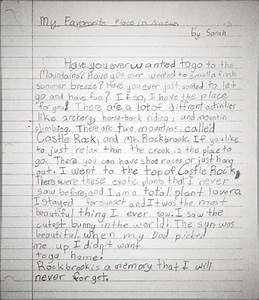 My Favorite Place in Nature
by Sarah
Have you ever wanted to go to the
Mountains? Have you ever wanted to smell a fresh
summer breeze? Have you ever just wanted to let
go and have fun? If so, I have the place
for you! There are a lot of different activities
like archery, horse-back riding, and mountin
climbing. There are two mountins called
Castle Rock, and Mt. Rockbrook. If you like
to just relax than the creek is the place to
go. There you can have shoe races or just hang
out. I went to the top of Castle Rock.
There were these exotic plants that I never
saw before, and I am a total plant lover.
I stayed for sunset and it was the most
beautiful thing I ever saw. I saw the
cutest bunny in the world! The sun was
beautiful. When my Dad picked
me up I didn't want
to go home!
Rockbrook is a memory that I will
never forget.